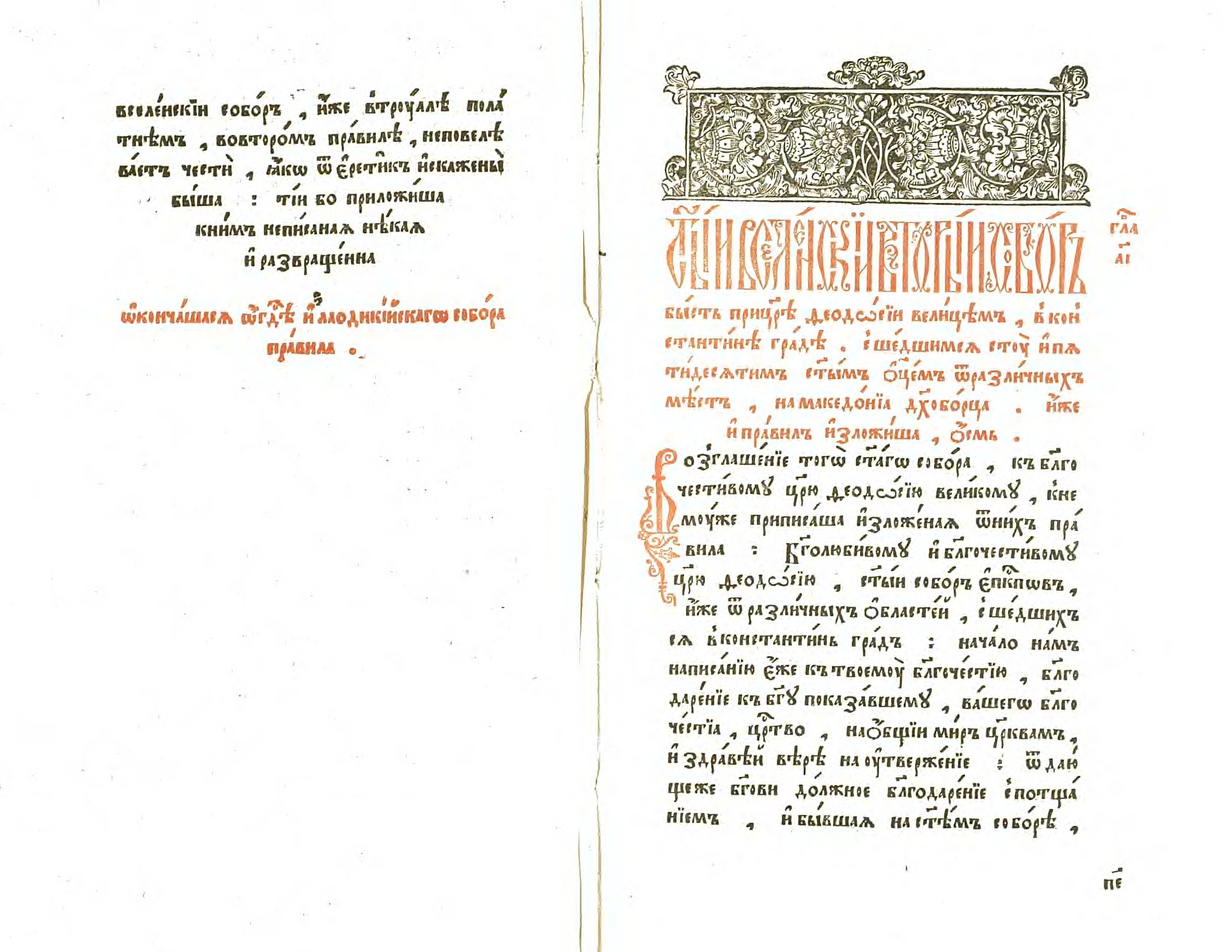 вселе́нскїи собо́ръ , и҆́же втроу́лѣ пола́
тнѣмъ , вовторо́мъ пра́вилѣ , неповелѣ
ва́етъ честѝ , ꙗ҆́кѡ ѿ є҆рети́къ и҆скаже́ны
бы́ша : ті́и бо приложи́ша
кни́мъ непи́саная нѣ́каѧ
и҆ развраще́нна
ѡ҆конча́шасѧ ѡ҆гдѣ и҆ лаодикі́искагѡ собо́ра
пра́вила .
ст҃ы́и вселе́нскїи вторы́и собо́ръ
гла
а҃і
бы́сть прицр҃ѣ ѳеодо́сїи вели́цѣмъ , вкон
стантинѣ гра́дѣ . сше́дшимсѧ стоу̀ и҆ пѧ
ти́десѧтимъ ст҃ы́мъ ѻ҆ц҃е́мъ ѿразли́чныхъ
мѣ́стъ , на македо́нїа дх҃обо́рца . и҆́же
и҆ пра́вилъ и҆зложи́ша , ѻ҆́смь .
Возглаше́нїе тогѡ̀ ст҃а́гѡ собо́ра , къ бл҃го
чести́вому цр҃ю̀ ѳеодѡ́сїю вели́кому , кне
моу́же приписа́ша и҆зложе́наѧ ѿни́хъ пра́
вила : Бг҃олюби́вому и҆ бл҃гочести́вому
цр҃ю̀ ѳеодѡ́сїю , ст҃ы́и собо́ръ є҆пк҃пѡвъ ,
и҆́же ѿ разли́чныхъ ѻ҆бласте́й , сше́дших
сѧ вконстанти́нь гра́дъ : нача́ло на́мъ
написа́нїю є҆́же къ твоемоу̀ бл҃гоче́стїю , бл҃го
даре́нїе къ бг҃у показа́вшему , ва́шегѡ бл҃го
че́стїа , цр҃тво , наѻ҆́бщїи ми́ръ цр҃квамъ ,
и҆ здра́вѣй вѣ́рѣ на оу҆твержє́нїе : ѿ даю́
ще же бг҃ови до́лжное бл҃годаре́нїе спотща́
нїемъ , и҆ бы́вшаѧ на ст҃ѣмъ собо́рѣ ,
п҃е